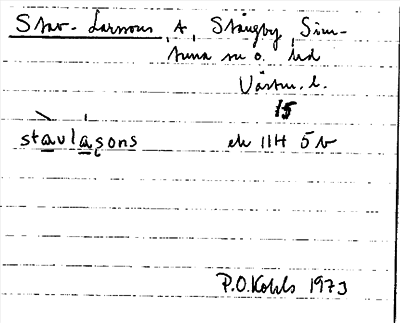 Stav-Larssons, A, Stångby, Sim-
tuna sn o. hd
Västm. l.
15
stavlaşons ek 11H 5 b
P.O.Kohls 1973